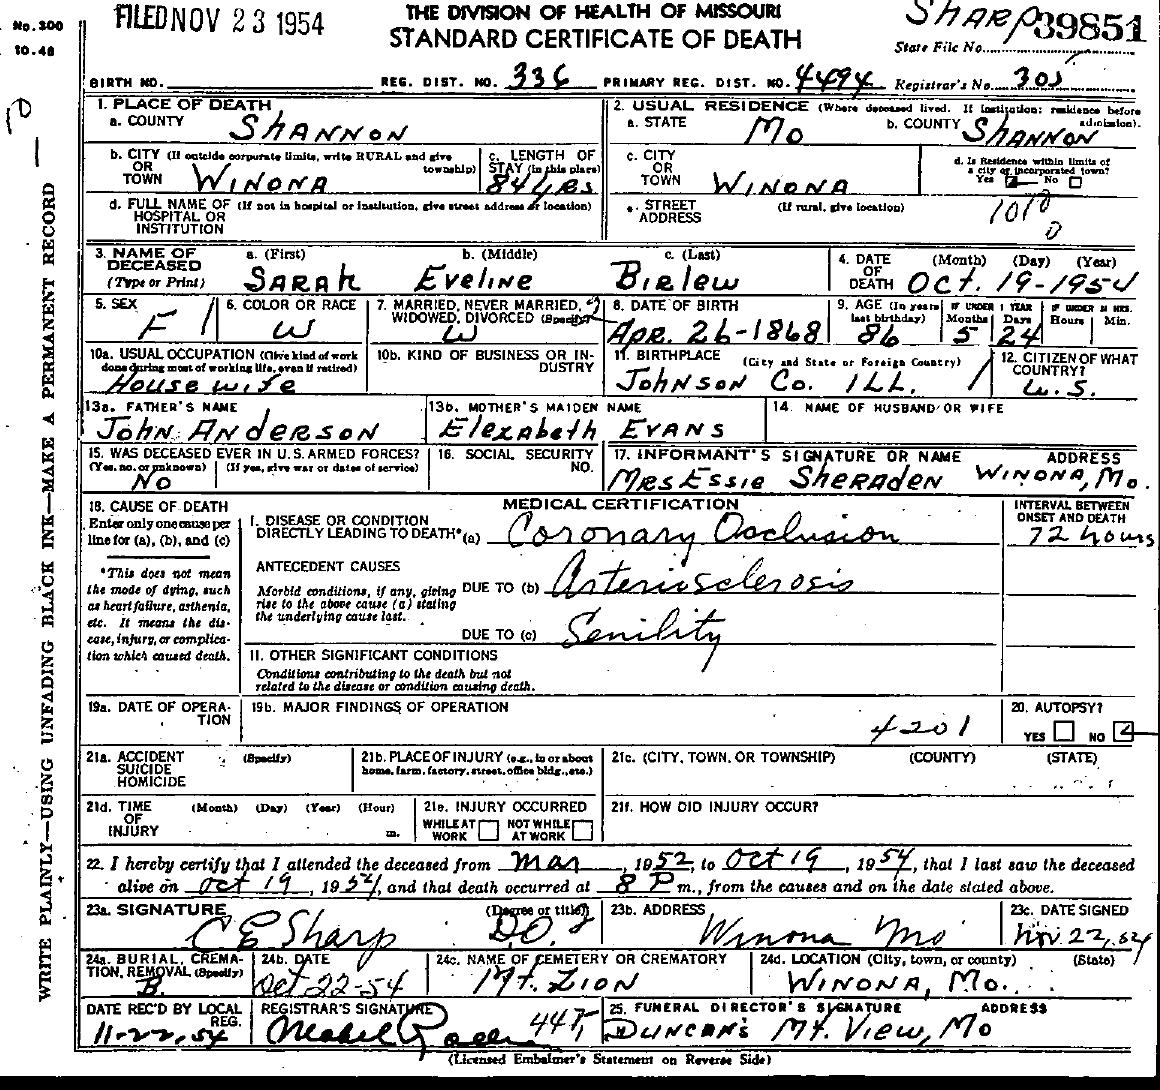 No. 300
10-48
FILED NOV 23 1954
THE DIVISION OF HEALTH OF MISSOURI
STANDARD CERTIFICATE OF DEATH
SHARP 39851
State File No.
BIRTH NO. REG. DIST. NO. 336 PRIMARY REG. DIST. NO. 4494 Registrar's No. 305
WRITE PLAINLY—USING UNFADING BLACK INK—MAKE A PERMANENT RECORD
1. PLACE OF DEATH
a. COUNTY SHANNON
2. USUAL RESIDENCE (Where deceased lived. If institution: residence before admission).
a. STATE MO b. COUNTY SHANNON
b. CITY (If outside corporate limits, write RURAL and give township) OR TOWN WINONA
c. LENGTH OF STAY (in this place) 84 yrs
c. CITY OR TOWN WINONA
d. Is Residence within limits of a city or incorporated town? Yes No
d. FULL NAME OF (If not in hospital or institution, give street address or location) HOSPITAL OR INSTITUTION
e. STREET ADDRESS (If rural, give location) 1010
0
3. NAME OF DECEASED (Type or Print) a. (First) SARAH b. (Middle) EVELINE c. (Last) BIRLEW
4. DATE OF DEATH (Month) (Day) (Year) OCT. 19-1954
5. SEX F
6. COLOR OR RACE W
7. MARRIED, NEVER MARRIED, WIDOWED, DIVORCED (Specify) W 2
8. DATE OF BIRTH APR. 26-1868
9. AGE (In years last birthday) 86 IF UNDER 1 YEAR Months 5 Days 24 IF UNDER 24 HRS. Hours Min.
10a. USUAL OCCUPATION (Give kind of work done during most of working life, even if retired) House wife
10b. KIND OF BUSINESS OR INDUSTRY
11. BIRTHPLACE (City and State or Foreign Country) JOHNSON Co. ILL.
12. CITIZEN OF WHAT COUNTRY? U.S.
13a. FATHER'S NAME JOHN ANDERSON
13b. MOTHER'S MAIDEN NAME ELEZABETH EVANS
14. NAME OF HUSBAND OR WIFE
15. WAS DECEASED EVER IN U.S. ARMED FORCES? (Yes, no, or unknown) (If yes, give war or dates of service) NO
16. SOCIAL SECURITY NO.
17. INFORMANT'S SIGNATURE OR NAME ADDRESS MRS ESSIE SHERADEN WINONA, MO.
18. CAUSE OF DEATH
Enter only one cause per line for (a), (b), and (c)
*This does not mean the mode of dying, such as heart failure, asthenia, etc. It means the disease, injury, or complication which caused death.
MEDICAL CERTIFICATION
INTERVAL BETWEEN ONSET AND DEATH
I. DISEASE OR CONDITION DIRECTLY LEADING TO DEATH* (a) Coronary Occlusion 72 hours
ANTECEDENT CAUSES
Morbid conditions, if any, giving rise to the above cause (a) stating the underlying cause last.
DUE TO (b) Arteriosclerosis
DUE TO (c) Senility
II. OTHER SIGNIFICANT CONDITIONS
Conditions contributing to the death but not related to the disease or condition causing death.
19a. DATE OF OPERATION
19b. MAJOR FINDINGS OF OPERATION 4201
20. AUTOPSY? YES NO
21a. ACCIDENT SUICIDE HOMICIDE (Specify)
21b. PLACE OF INJURY (e.g., in or about home, farm, factory, street, office bldg., etc.)
21c. (CITY, TOWN, OR TOWNSHIP) (COUNTY) (STATE)
21d. TIME OF INJURY (Month) (Day) (Year) (Hour) m.
21e. INJURY OCCURRED WHILE AT WORK NOT WHILE AT WORK
21f. HOW DID INJURY OCCUR?
22. I hereby certify that I attended the deceased from Mar, 1952, to Oct 19, 1954, that I last saw the deceased
alive on Oct 19, 1954, and that death occurred at 8 P m., from the causes and on the date stated above.
23a. SIGNATURE (Degree or title) C E Sharp D.O.
23b. ADDRESS Winona Mo
23c. DATE SIGNED Nov. 22, 54
24a. BURIAL, CREMATION, REMOVAL (Specify) B.
24b. DATE Oct 22-54
24c. NAME OF CEMETERY OR CREMATORY MT. ZION
24d. LOCATION (City, town, or county) (State) WINONA, MO.
DATE REC'D BY LOCAL REG. 11-22-54
REGISTRAR'S SIGNATURE Mabel 447
25. FUNERAL DIRECTOR'S SIGNATURE ADDRESS DUNCAN'S MT. VIEW, MO
(Licensed Embalmer's Statement on Reverse Side)